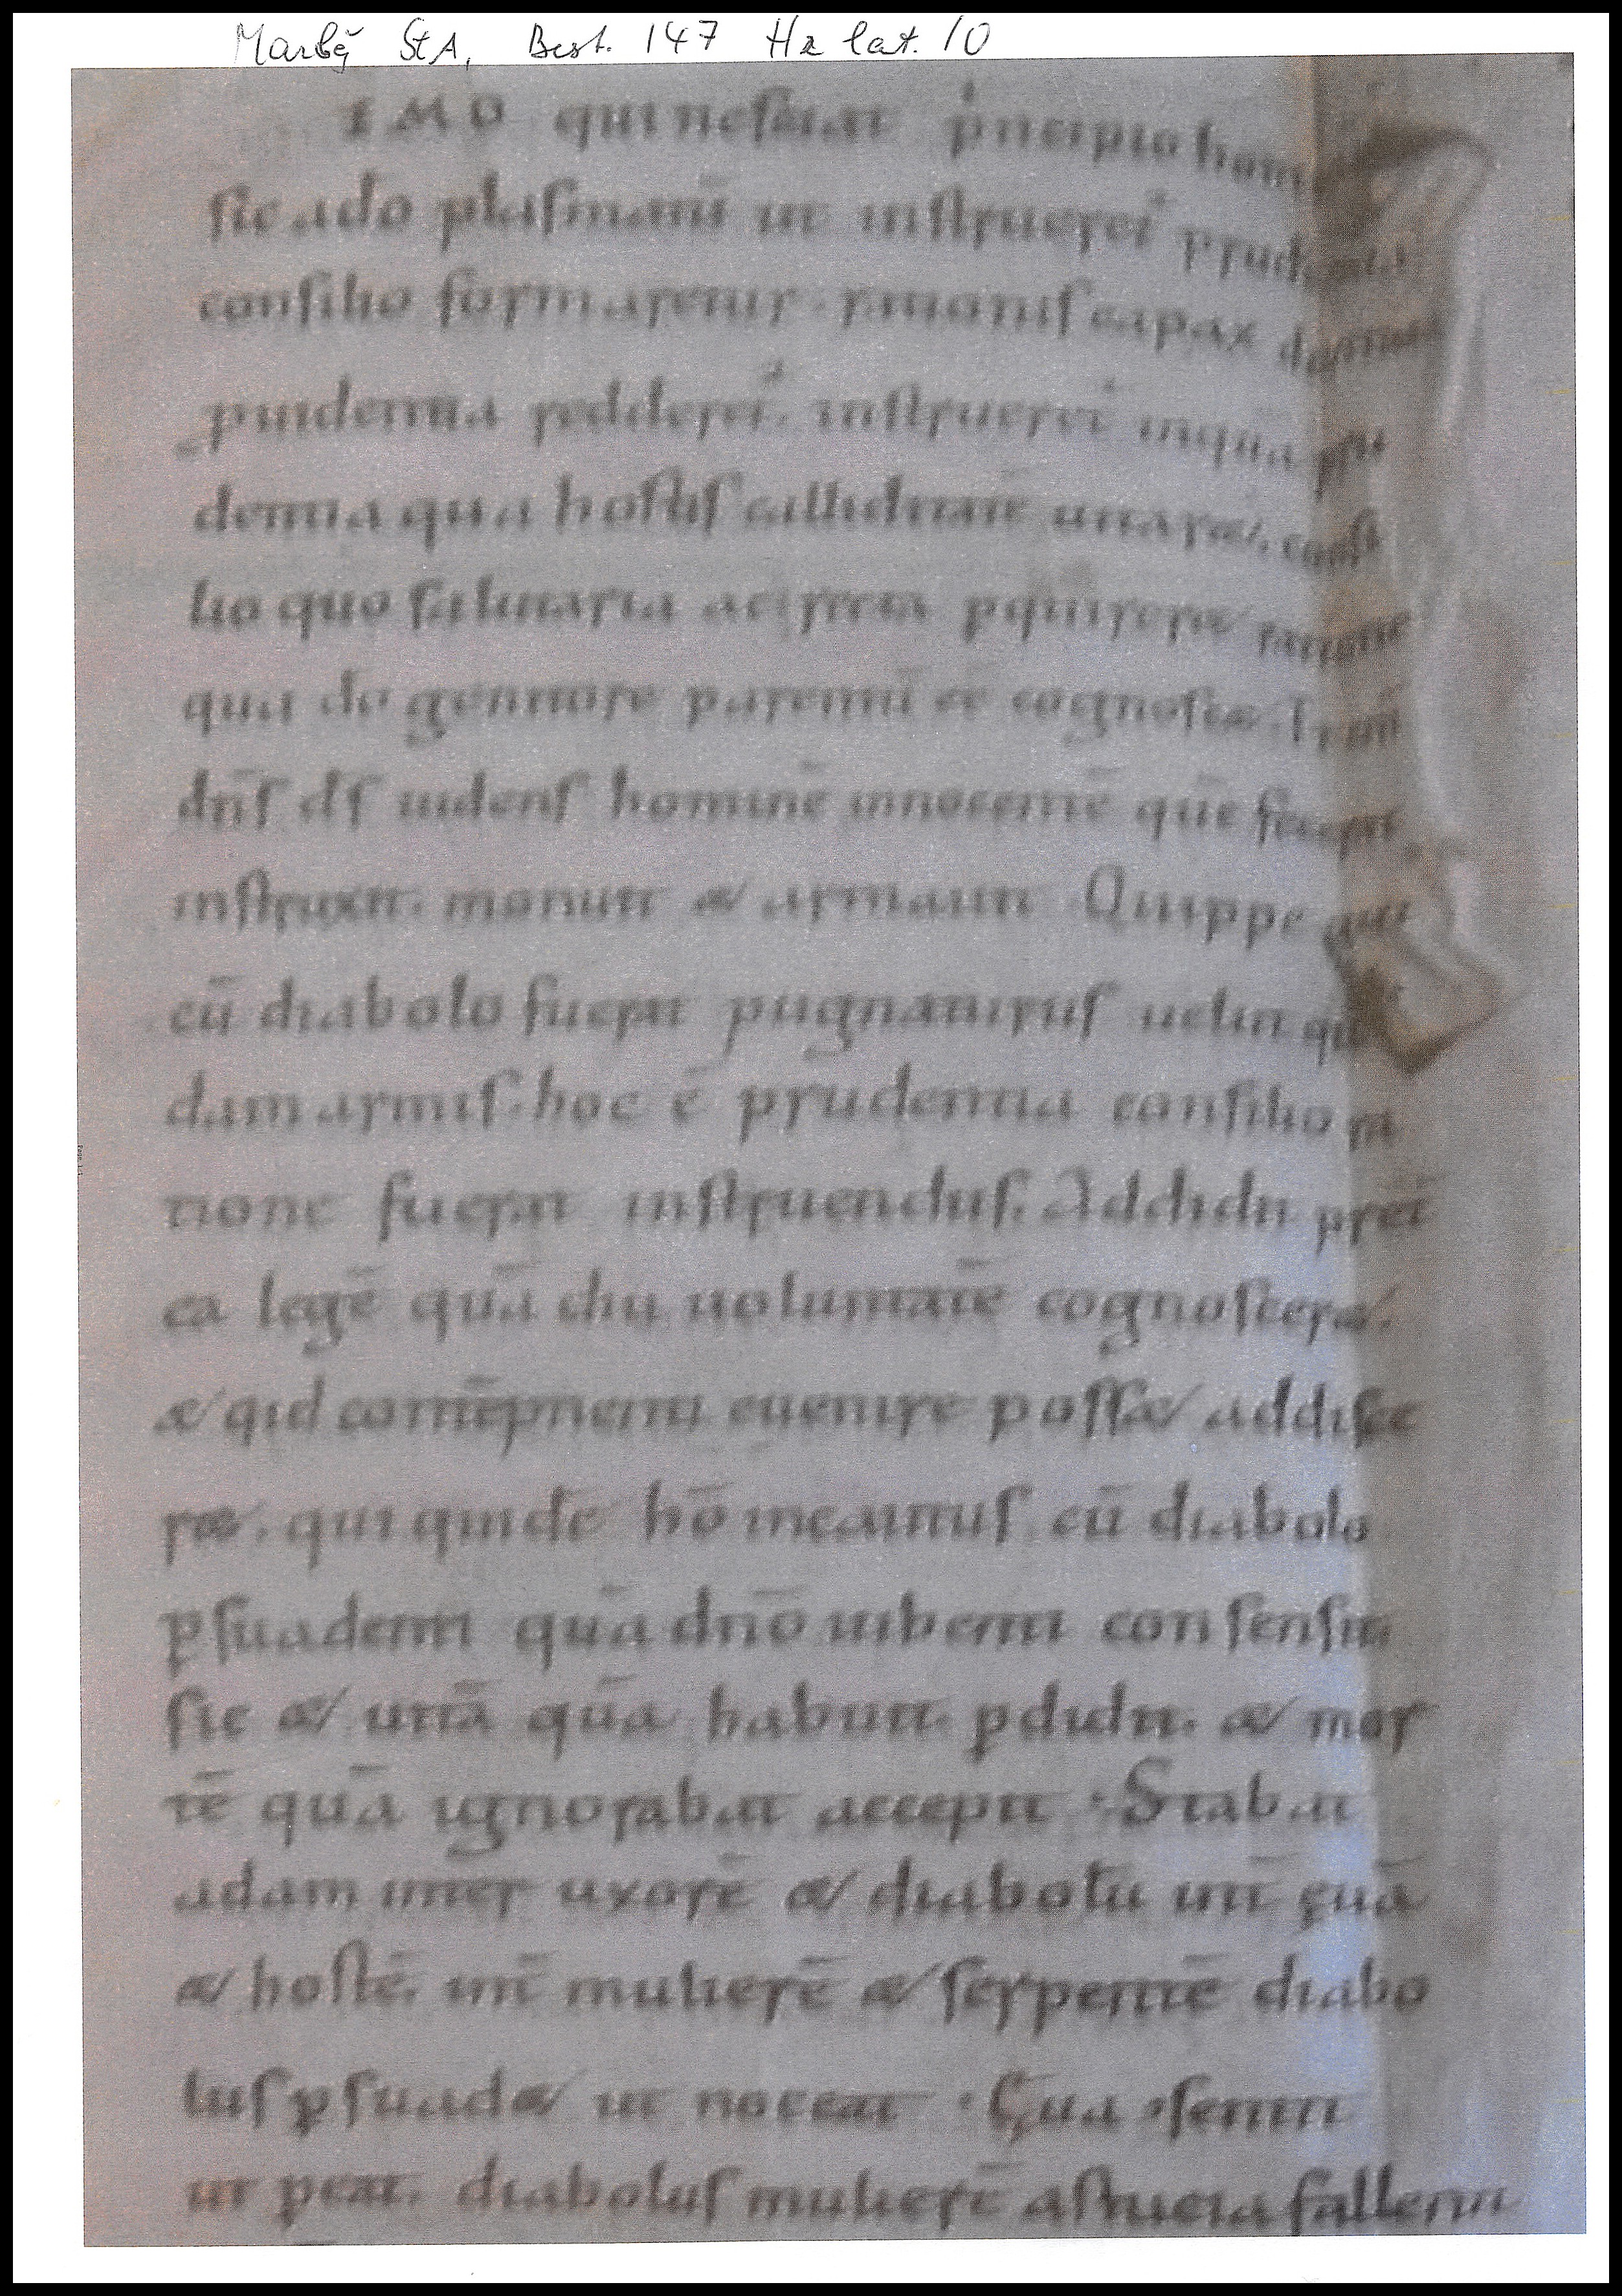 Marbg StA, Best. 147 Hr lat. 10
IMO qui nesciat p͛ncipio hom
sic a do plasmatū ut instrueret᷑ prudentia
consilio formaretur. rationis capax diuine
prudentia redderet᷑. instrueret᷑ inquā pru
dentia qua hostis calliditatē uitar&. consi
lio quo salutaria ac recta pquirer& ratione
qua do genitore parentū eē cognosc&.
dn̄s ds uidens hominē innocentē quē fecerat
instruxit. monuit & armauit Quippe qui
cū diabolo fuerat pugnaturus uelut qui
dam armis. hoc ē prudentia consilio ra
tione fuerat instruendus. Addidit pret
ea legē quā diu uoluntatē cognoscer&.
& qid contēpnenti euenire poss& addisce
r&. qui quidē hō incautus cū diabolo
psuadenti quā dnō iubenti consensit
sic & uitā quā habuit. pdidit. & mor
tē quā ignorabat accepit. Stabat
adam inter uxorē & diabolū int̄ ęuā
& hostē. int̄ mulierē & serpentē diabo
lus psuad& ut noceat. Ęua ɔsentit
ut pcat. diabolus mulierē astucia fallenti